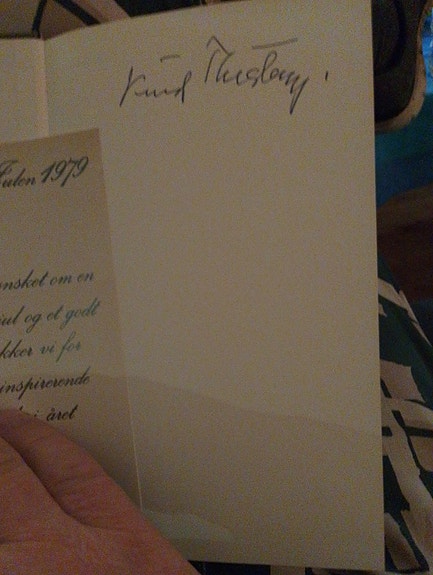 Knud
Julen 1979
ønsket om en
jul og et godt
kker vi for
inspirerende
året